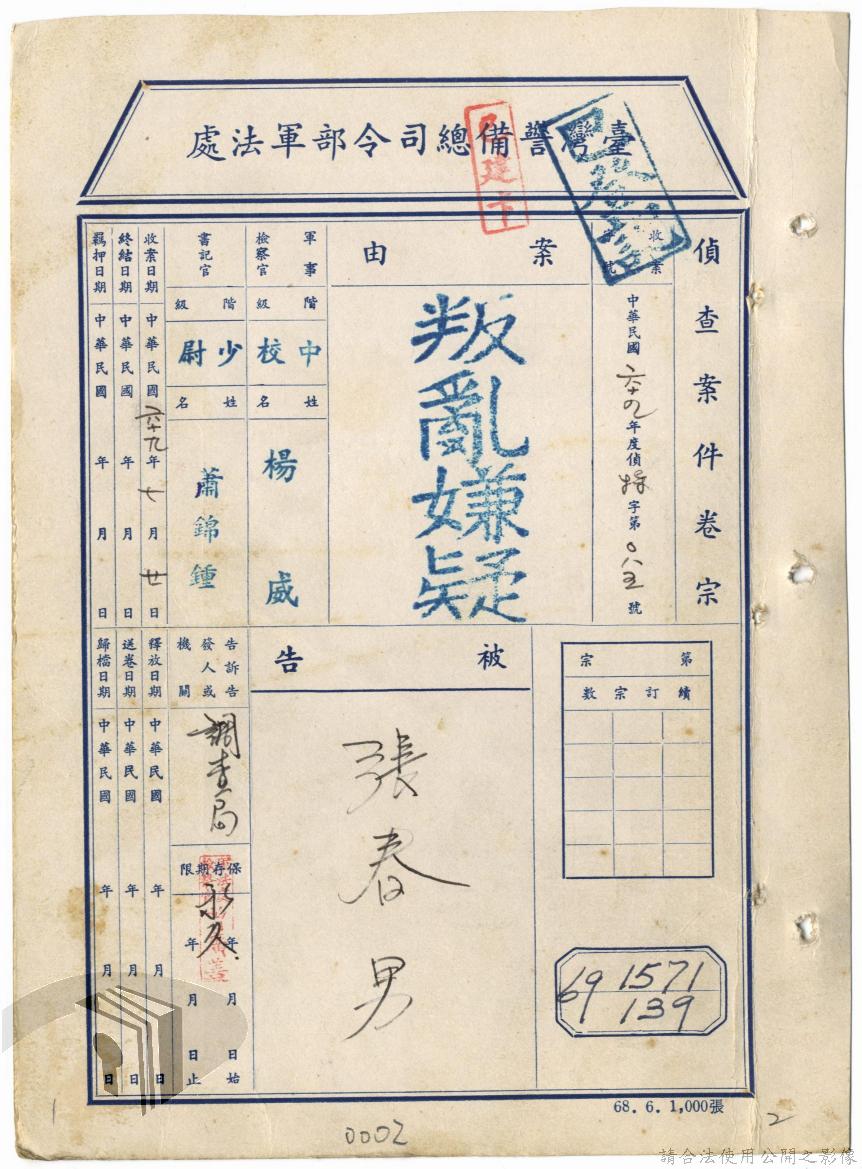 臺灣警備總司令部軍法處
已建卡
偵查案件卷宗
收案
號
中華民國六十九年度偵特字第〇八五號
案由
叛亂嫌疑
軍事檢察官
階級
中校
姓名
楊威
書記官
階級
少尉
姓名
蕭錦鍾
收案日期 中華民國六十九年七月廿日
終結日期 中華民國 年 月 日
羈押日期 中華民國 年 月 日
第 宗
續訂宗數
69 1571
139
被告
張春男
告訴告發人或機關
調查局
保存期限
永久
年 月 日始
年 月 日止
釋放日期 中華民國 年 月 日
送卷日期 中華民國 年 月 日
歸檔日期 中華民國 年 月 日
68. 6. 1,000張
1
0002
2
請合法使用公開之影像